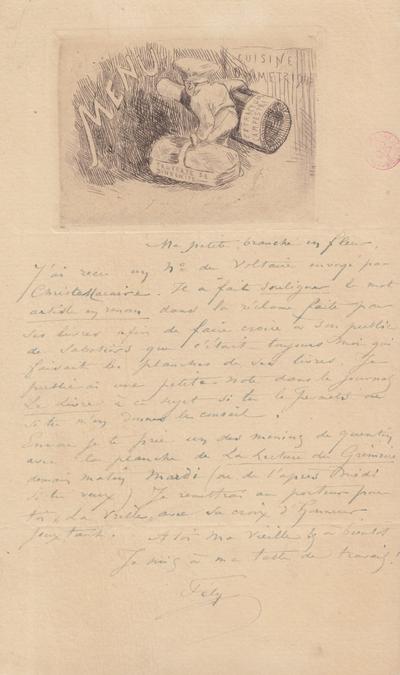 MENU
CUISINE
Ma petite branche en fleur,
J'ai reçu un No du Voltaire envoyé par
Je a fait souligner le mot
artiste en renom dans la réclame faite par
ses livres afin de faire croire à son public
de que c'était toujours moi qui
faisait les planches de ses livres. Je
publierai une petite note dans le journal
Le Livre à ce sujet si tu le permets ou
si tu m'en donnes le conseil.
je te prie un des menins de quentin
avec la planche de La Lecture du Grimoire
demain matin Mardi (ou de l'après Midi
si tu veux) Je remettrai au porteur pour
toi, La Vieille, avec sa croix d'honneur
A toi ma vieille & à bientôt
Je suis à ma table de travail!
Fély